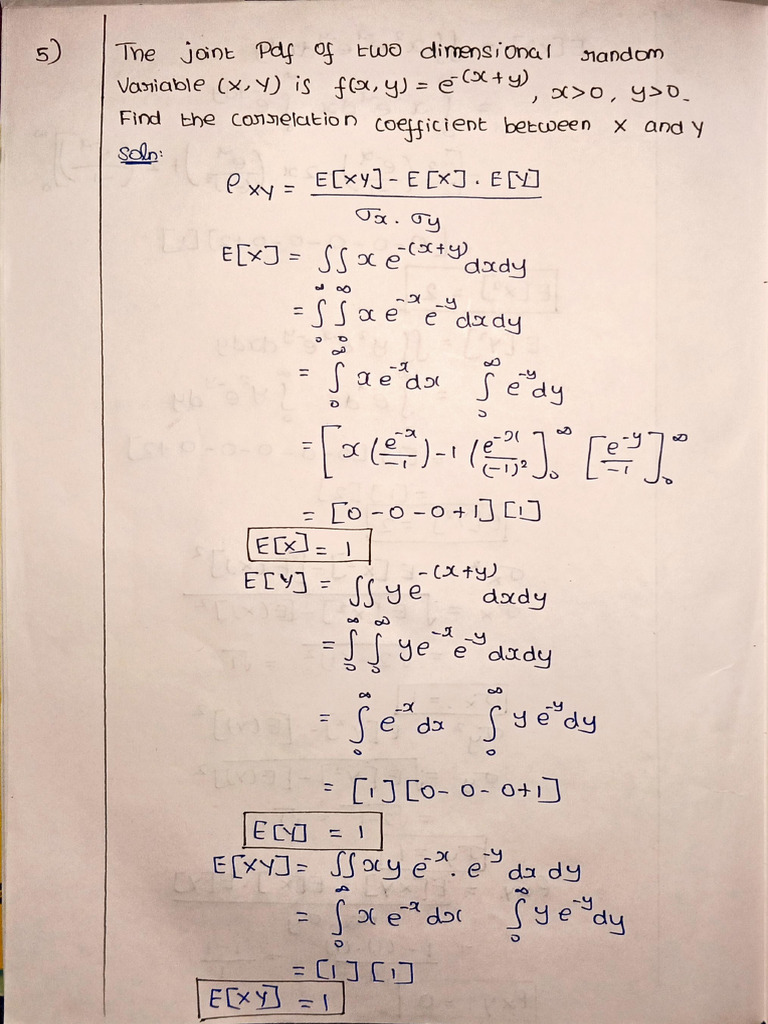 5) The joint Pdf of two dimensional random
Variable (X,Y) is f(x,y) = e^-(x+y), x>0, y>0.
Find the correlation coefficient between X and Y
Soln:
ρ_XY = (E[XY] - E[X] . E[Y]) / (σx . σy)
E[X] = ∫∫ x e^-(x+y) dxdy
= ∫_0^∞ ∫_0^∞ x e^-x e^-y dxdy
= ∫_0^∞ x e^-x dx ∫_0^∞ e^-y dy
= [x (e^-x / -1) - 1 (e^-x / (-1)^2)]_0^∞ [e^-y / -1]_0^∞
= [0 - 0 - 0 + 1] [1]
E[X] = 1
E[Y] = ∫∫ y e^-(x+y) dxdy
= ∫_0^∞ ∫_0^∞ y e^-x e^-y dxdy
= ∫_0^∞ e^-x dx ∫_0^∞ y e^-y dy
= [1] [0 - 0 - 0 + 1]
E[Y] = 1
E[XY] = ∫∫ x y e^-x . e^-y dx dy
= ∫_0^∞ x e^-x dx ∫_0^∞ y e^-y dy
= [1] [1]
E[XY] = 1